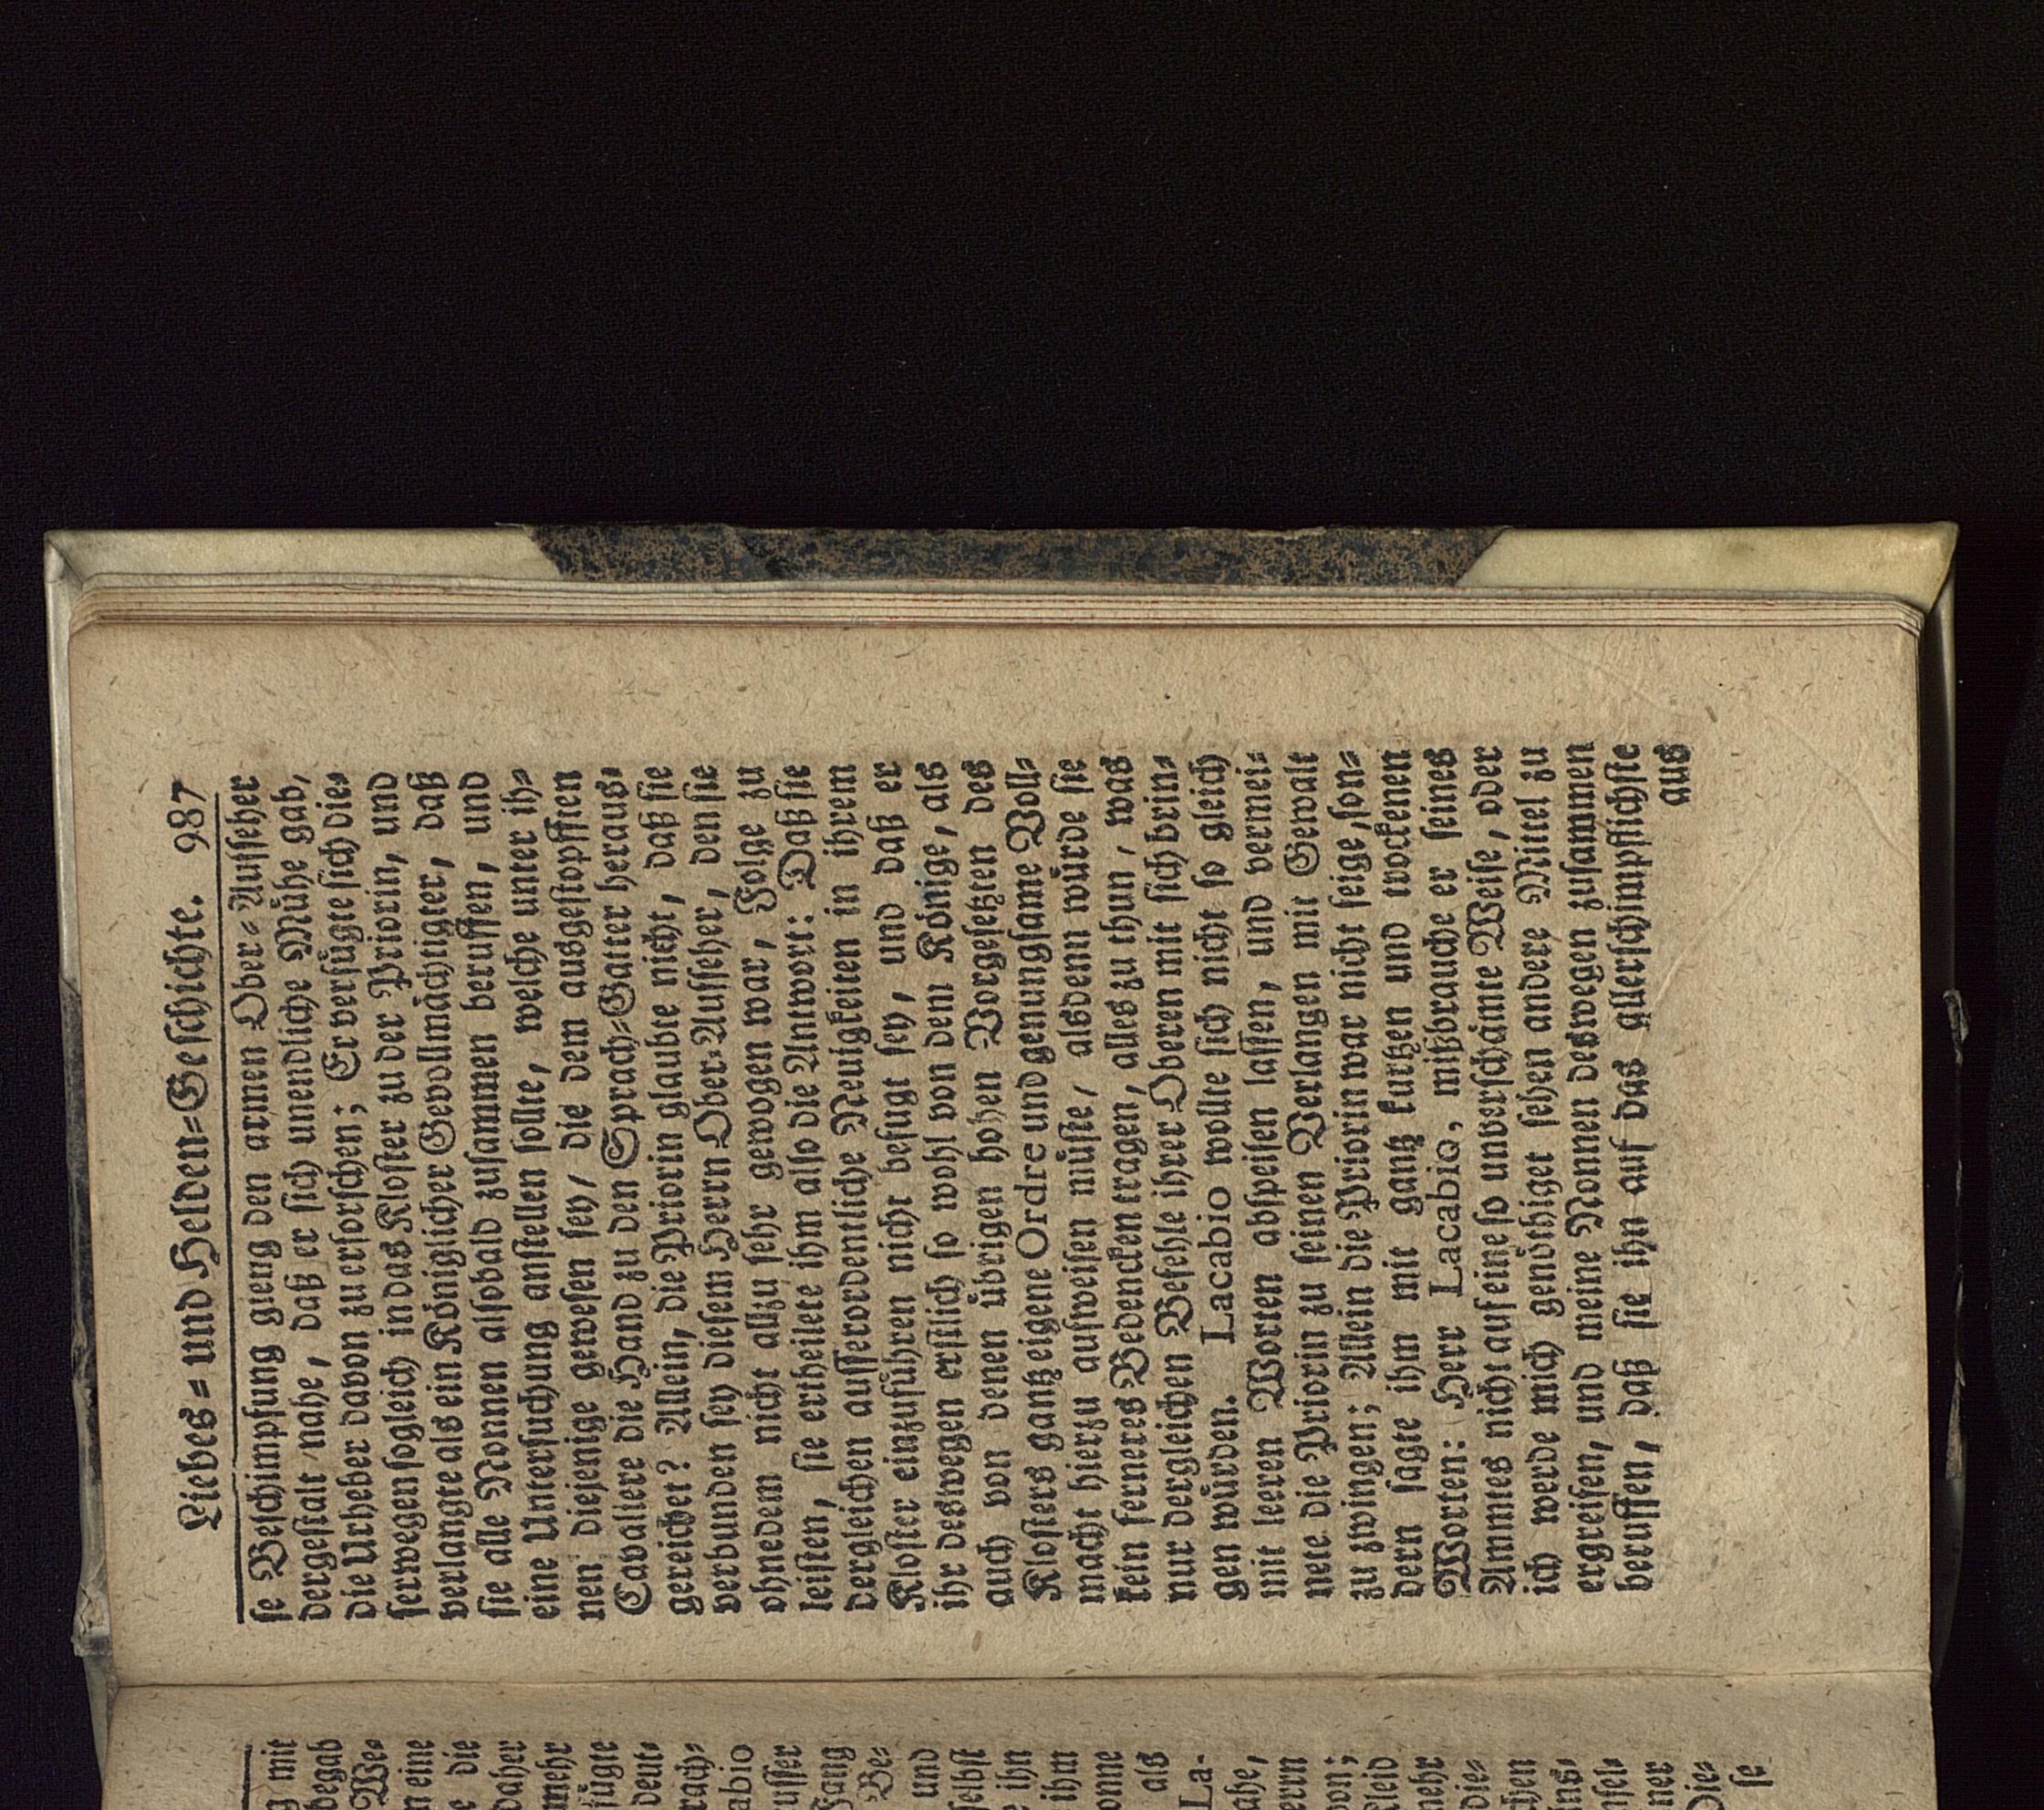 Liebes- und Helden-Geschichte. 987
se Beschimpfung gieng den armen Ober-Aufseher
dergestalt nahe, daß er sich unendliche Mühe gab,
die Urheber davon zu erforschen; Er verfügte sich die-
serwegen sogleich in das Kloster zu der Priorin, und
verlangte als ein Königlicher Gevollmächtigter, daß
sie alle Nonnen alsobald zusammen beruffen, und
eine Untersuchung anstellen sollte, welche unter ih-
nen diejenige gewesen sey, die dem ausgestopfften
Cavaliere die Hand zu den Sprach-Gatter heraus-
gereichet? Allein, die Priorin glaubte nicht, daß sie
verbunden sey diesem Herrn Ober-Aufseher, den sie
ohnedem nicht allzu sehr gewogen war, Folge zu
leisten, sie ertheilete ihm also die Antwort: Daß sie
dergleichen ausserordentliche Neuigkeiten in ihrem
Kloster einzuführen nicht befugt sey, und daß er
ihr deswegen erstlich so wohl von dem Könige, als
auch von denen übrigen hohen Vorgesetzten des
Klosters gantz eigene Ordre und genungsame Voll-
macht hierzu aufweisen müste, alsdenn würde sie
kein ferneres Bedencken tragen, alles zu thun, was
nur dergleichen Befehle ihrer Oberen mit sich brin-
gen würden. Lacabio wollte sich nicht so gleich
mit leeren Worten abspeisen lassen, und vermei-
nete die Priorin zu seinen Verlangen mit Gewalt
zu zwingen; Allein die Priorin war nicht feige, son-
dern sagte ihm mit gantz kurtzen und trockenen
Worten: Herr Lacabio, mißbrauche er seines
Ammtes nicht auf eine so unverschämte Weise, oder
ich werde mich genöthiget sehen andere Mittel zu
ergreifen, und meine Nonnen deswegen zusammen
beruffen, daß sie ihn auf das allerschimpflichste
aus
mit
begab
We-
eine
die
daher
mehr
fügte
deut-
rach-
abio
usser
Fang
Be-
und
selbst
ihn
ihm
onne
als
La-
ahe,
errn
von;
Kleid
mehr
die-
chen
ins-
nsel-
ner
Die-
se